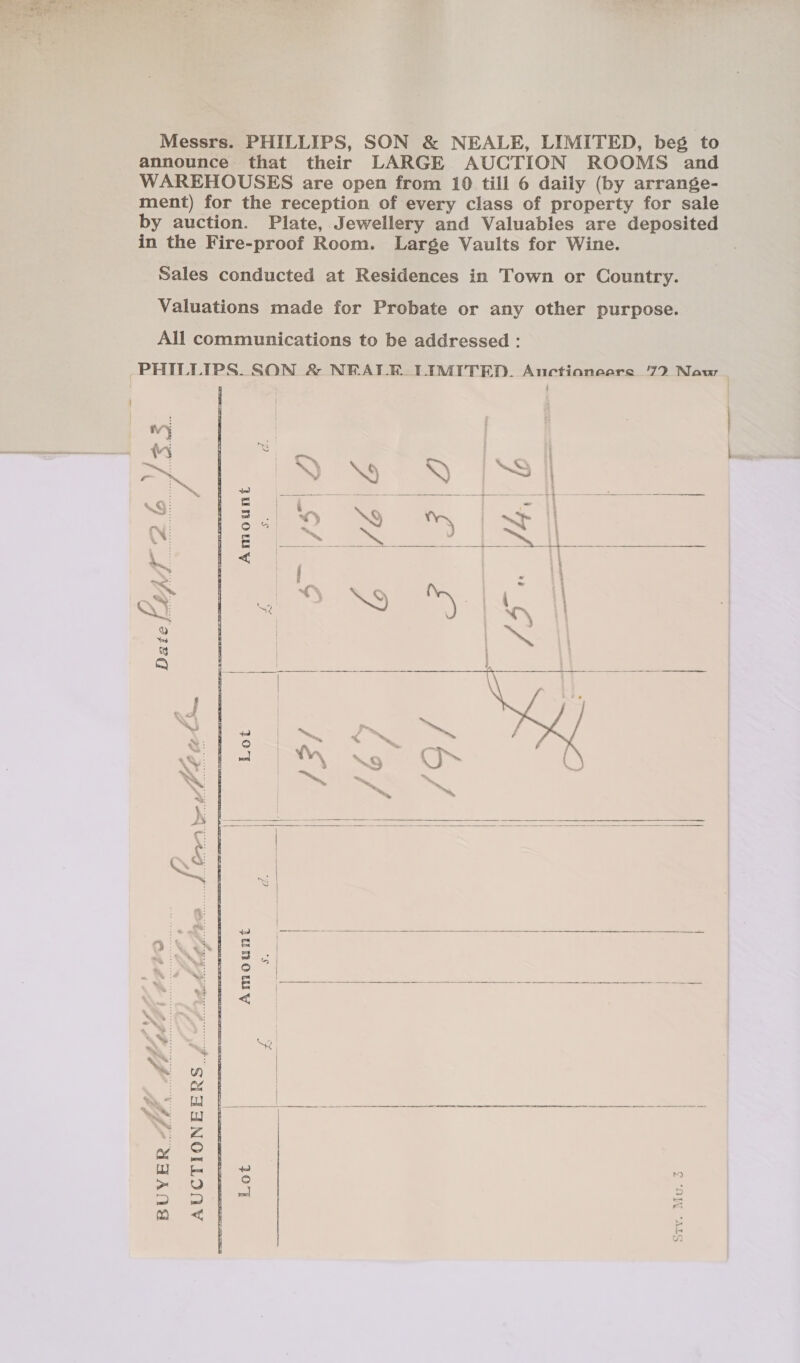 Messrs. PHILLIPS, SON & NEALE, LIMITED, beg to
announce that their LARGE AUCTION ROOMS and
WAREHOUSES are open from 10 till 6 daily (by arrange-
ment) for the reception of every class of property for sale
by auction. Plate, Jewellery and Valuables are deposited
in the Fire-proof Room. Large Vaults for Wine.
Sales conducted at Residences in Town or Country.
Valuations made for Probate or any other purpose.
All communications to be addressed :
PHILLIPS, SON & NEALE LIMITED, Auctioneers 72 New
BUYER Date Sept 26/33
AUCTIONEERS Phillips Son & Neale
Lot Amount Lot Amount
£ s. d. £ s. d.
131 5 15 0
167 6 16 6
191 3 3 0
15 .. 14. 6
Stv. Mu. 3